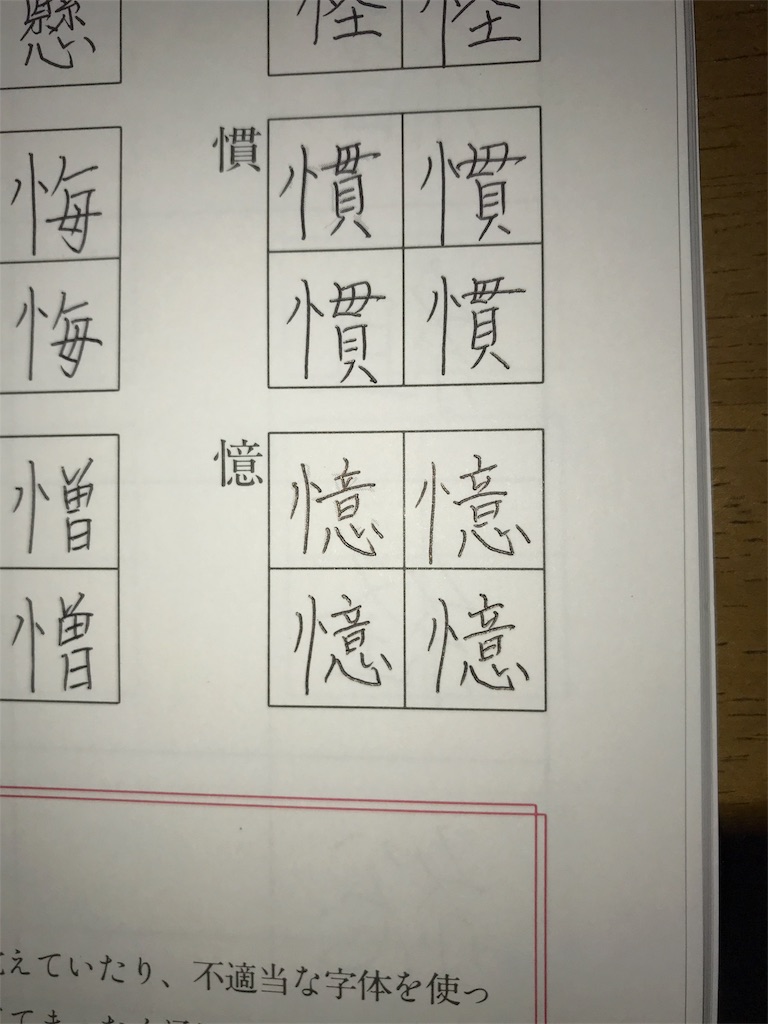 怪 怪
慣
慣 慣
慣 慣
憶
憶 憶
憶 憶
懸
悔
悔
憎
憎
えていたり、不適当な字体を使っ